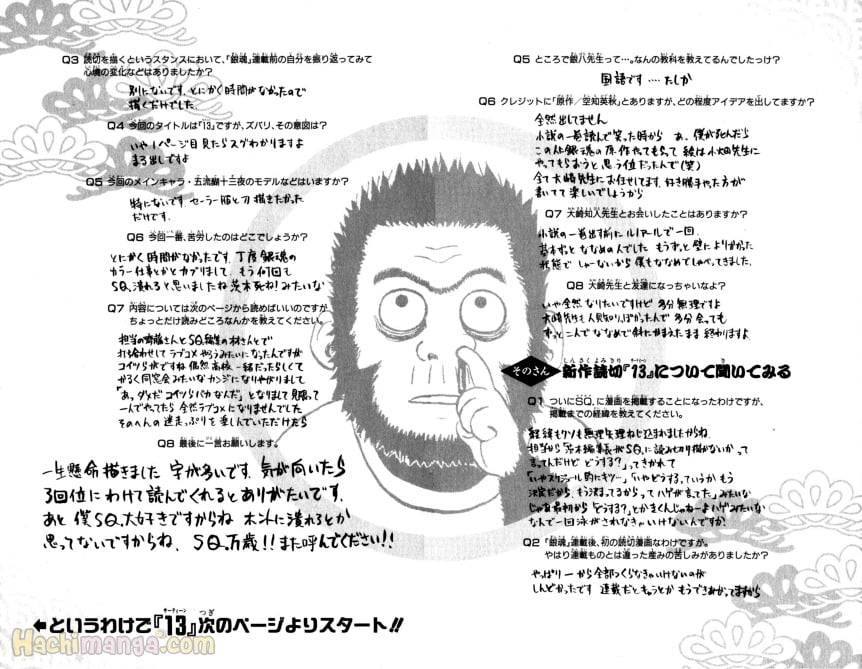 Q5 ところで銀八先生って…。なんの教科を教えてるんでしたっけ?
国語です….たしか
Q6 クレジットに「原作/空知英秋」とありますが、どの程度アイデアを出してますか?
全然出してません
小説の一巻読んで笑った時から あ、僕が死んだら
この人に銀魂の原作やってもらって 絵は小畑先生に
やってもらおうと思う位だったんで(笑)
全て大崎先生にお任せしてます 好き勝手やった方が
書いてて楽しいでしょうから
Q7 大崎知仁先生とお会いしたことはありますか?
小説の一巻出す前にルノアールで一回.
基本ずっと ななめの人でした もうずっと壁によりかかった
状態で しゃーないから 僕もななめでしゃべってきました.
Q8 大崎先生と友達になっちゃいなよ?
いや全然なりたいですけど 多分無理ですよ
大崎先生も人見知りっぽかったんで 多分会っても
ずっと二人でななめで斜たがまうたまま 終わりますよ
そのさん 新作読切『13』について聞いてみる
Q1 ついにSQ.に漫画を掲載することになったわけですが、
掲載までの経緯を教えてください。
経緯もクソも無理矢理ねじ込まれましたからね.
担当から「茨木編集長がSQ.に読み切り描かないかって
言ってんだけど どうする?」ってきかれて
「いやスケジュール的にキツ…」「いやどうする、ていうか もう
決定だから. もう決まってるからってハゲが言ってた」みたいな
じゃあ最初から「どうする?」とかきくんじゃねーよハゲみたいな
なんで一回泳がされなきゃいけないんですか?
Q2 「銀魂」連載後、初の読切漫画なわけですが、
やはり連載ものとは違った産みの苦しみがありましたか?
やっぱり一から全部つくらなきゃいけないのが
しんどかったです 連載だとキャラとか もうできあがってますから
Q3 読切を描くというスタンスにおいて、「銀魂」連載前の自分を振り返ってみて
心境の変化などはありましたか?
別にないです. とにかく時間がなかったので
描くだけでした.
Q4 今回のタイトルは「13」ですが、ズバリ、その意図は?
いや1ページ目見たらスグわかりますよ
まる出しですよ
Q5 今回のメインキャラ・五流醐十三夜のモデルなどはいますか?
特にないです. セーラー服と刀描きたかった
だけです.
Q6 今回一番、苦労したのはどこでしょうか?
とにかく時間がなかったです. 丁度銀魂の
カラー仕事とかとカブりまして. もう何回も
SQ.潰れろと思いましたね 茨木死ね!みたいな
Q7 内容については次のページから読めばいいのですが、
ちょっとだけ読みどころなんかを教えてください。
担当の齊藤さんとSQ.編集の林さんとで
打ち合わせして ラブコメやろうみたいになったんですが
コイツらがですね 偶然高校一緒だったらしくて
かるく同窓会みたいなカンジになりやがりまして
「あっダメだ コイツらバカなんだ」となりまして 見限って
一人でやってたら 全然ラブコメになりませんでした
そのへんの迷走っぷりを楽しんでいただけたら
Q8 最後に一言お願いします。
一生懸命描きました 字が多いです. 気が向いたら
3回位にわけて読んでくれるとありがたいです.
あと 僕SQ.大好きですからね ホントに潰れろとか
思ってないですからね. SQ.万歳!!また呼んでください!!
←というわけで『13』次のページよりスタート!!
サーティーン
つぎ
Hachimanga.com